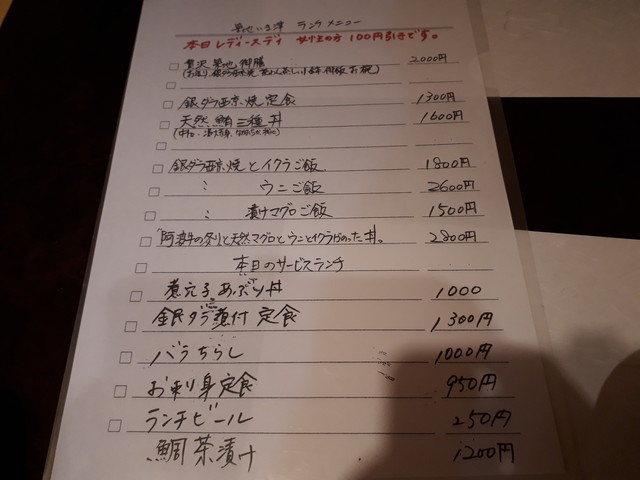 ランチメニュー
本日レディースディ 女性の方 100円引きです。
贅沢 築地御膳 2000円
銀ダラ西京焼定食 1300円
天然鮪三種丼 1600円
銀ダラ西京焼とイクラご飯 1800円
〃 ウニご飯 2600円
〃 漬けマグロご飯 1500円
と天然マグロとウニとイクラがのった丼。 2800円
本日のサービスランチ
煮穴子あぶり丼 1000
銀ダラ煮付定食 1300円
バラちらし 1000円
お刺身定食 950円
ランチビール 250円
鯛茶漬け 1200円